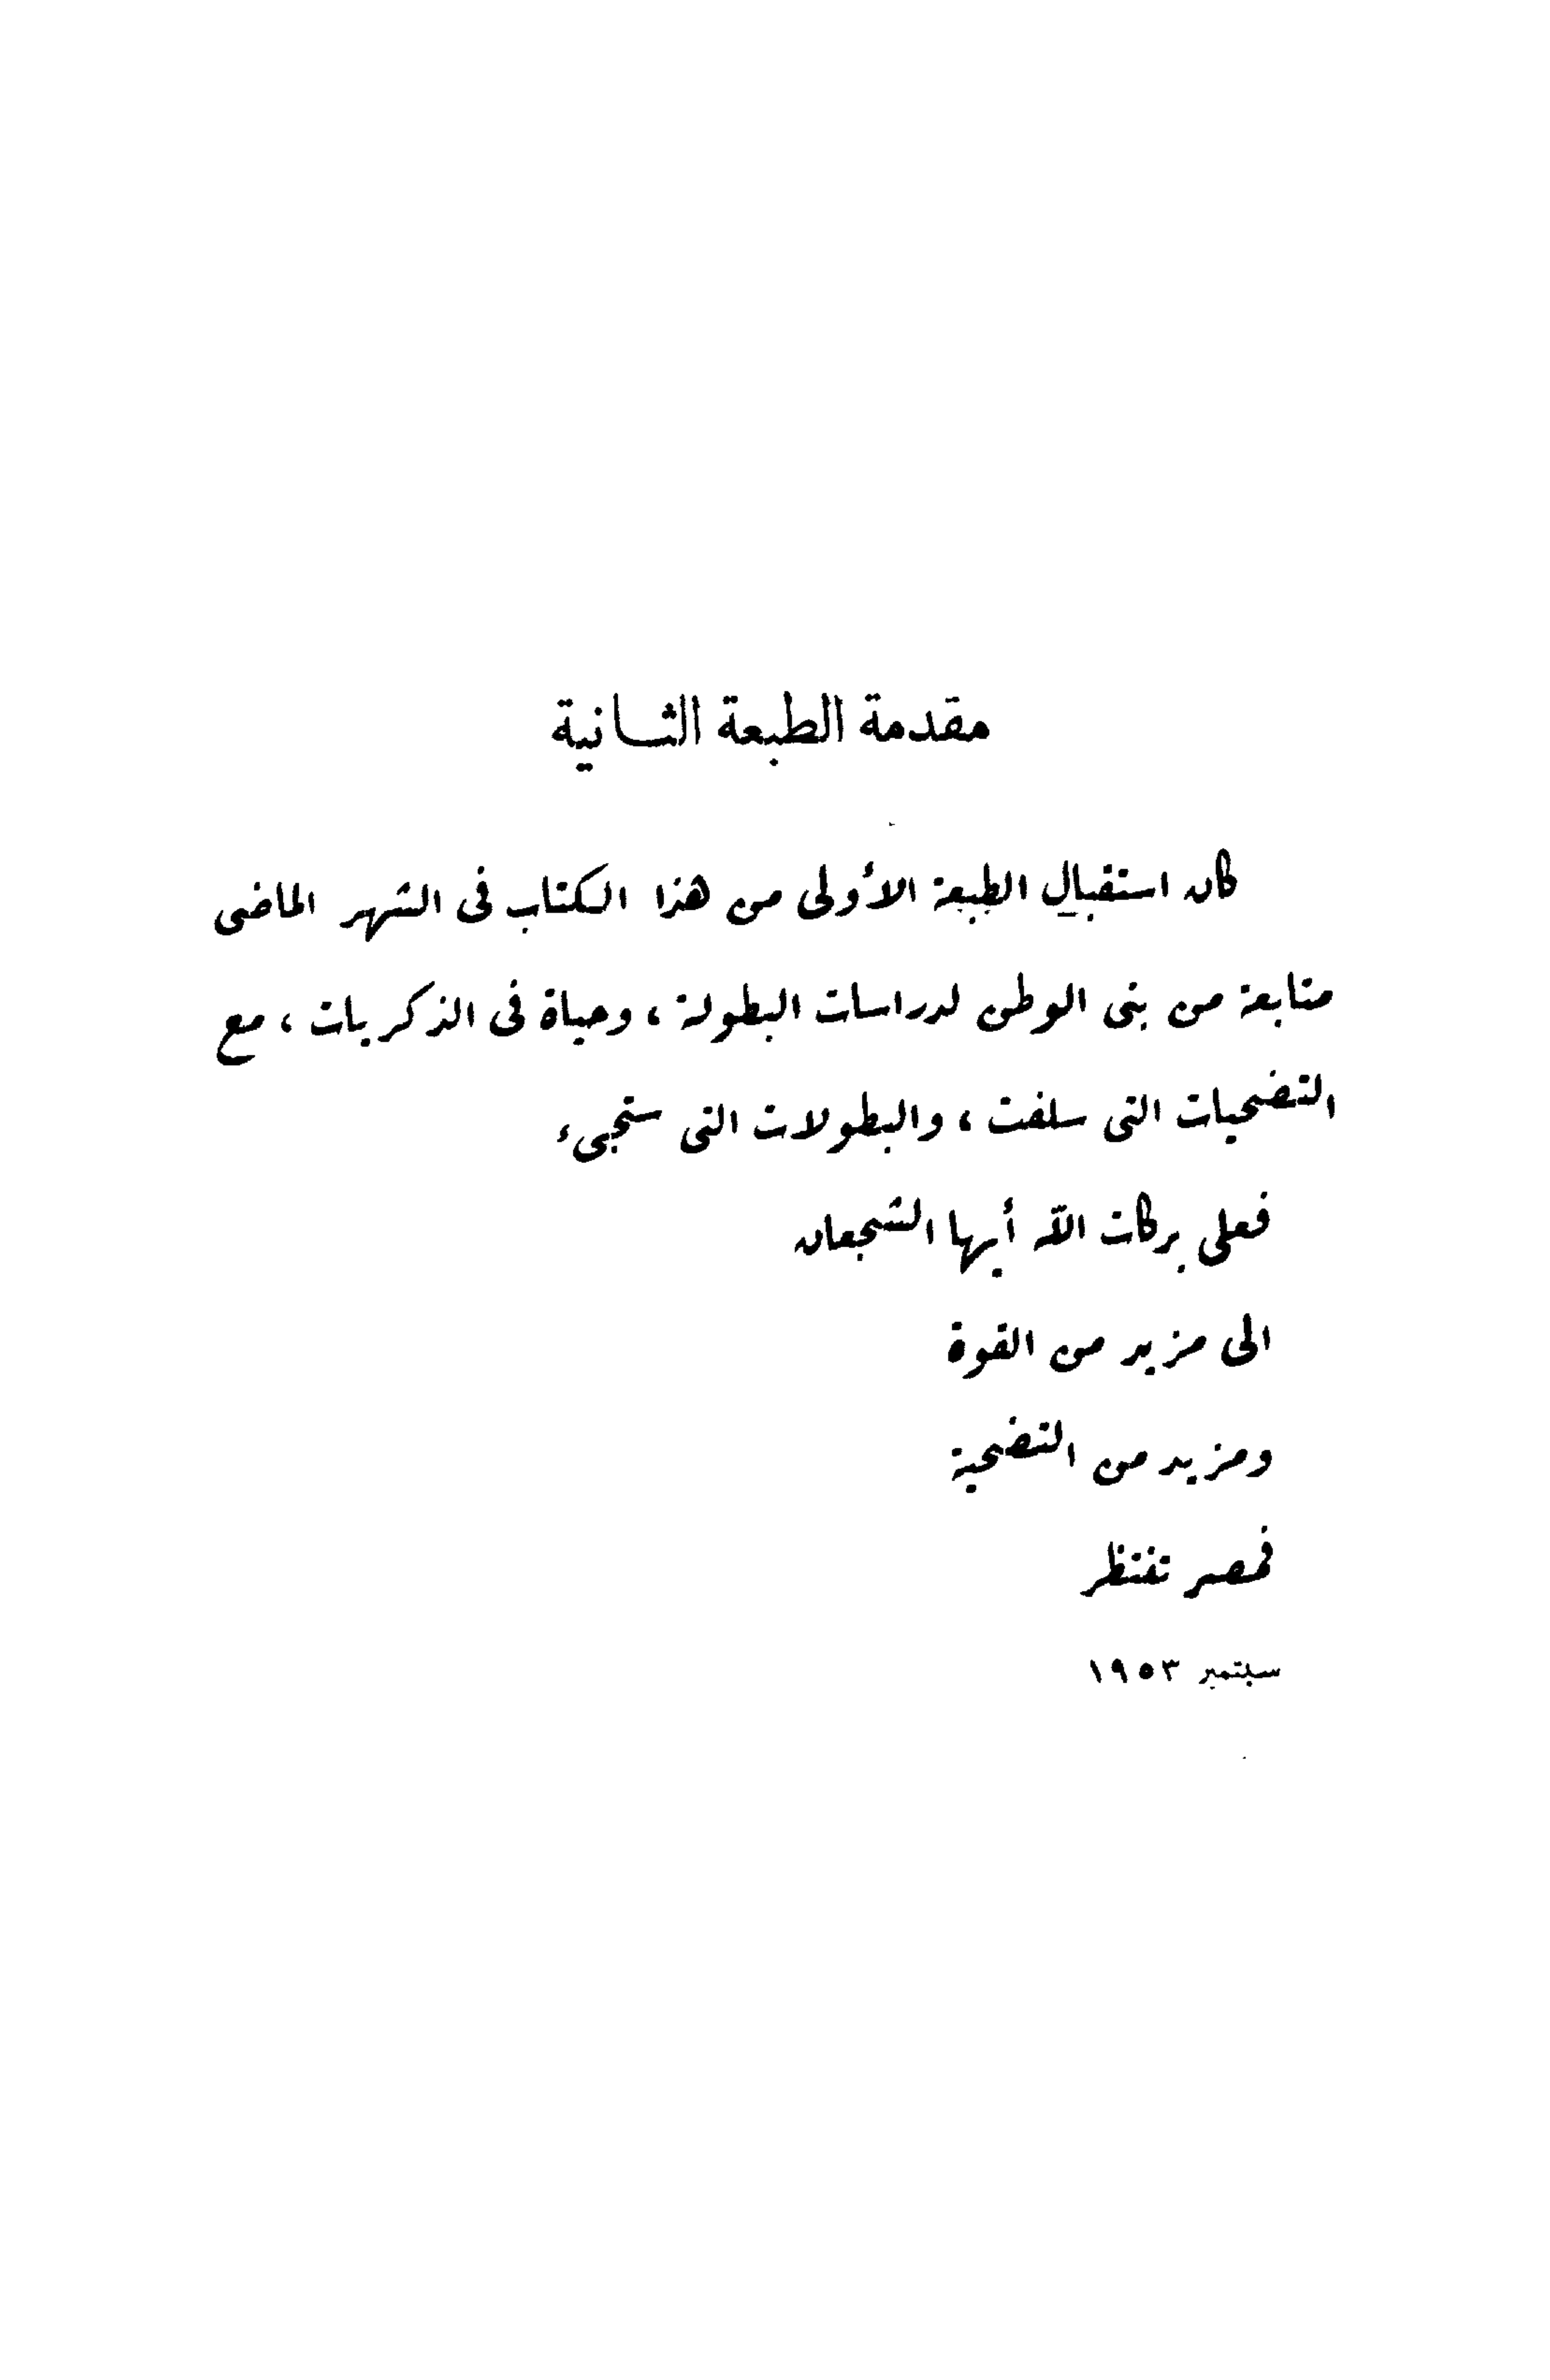 مقدمة الطبعة الثانية
كان استقبال الطبعة الأولى من هذا الكتاب فى الشهر الماضى
متابعة من بنى الوطن لدراسات البطولة ، وحياة فى الذكريات ، مع
التضحيات التى سلفت ، والبطولات التى ستجىء
فعلى بركات الله أيها الشجعان
الى مزيد من القوة
ومزيد من التضحية
فمصر تنتظر
سبتمبر ١٩٥٣